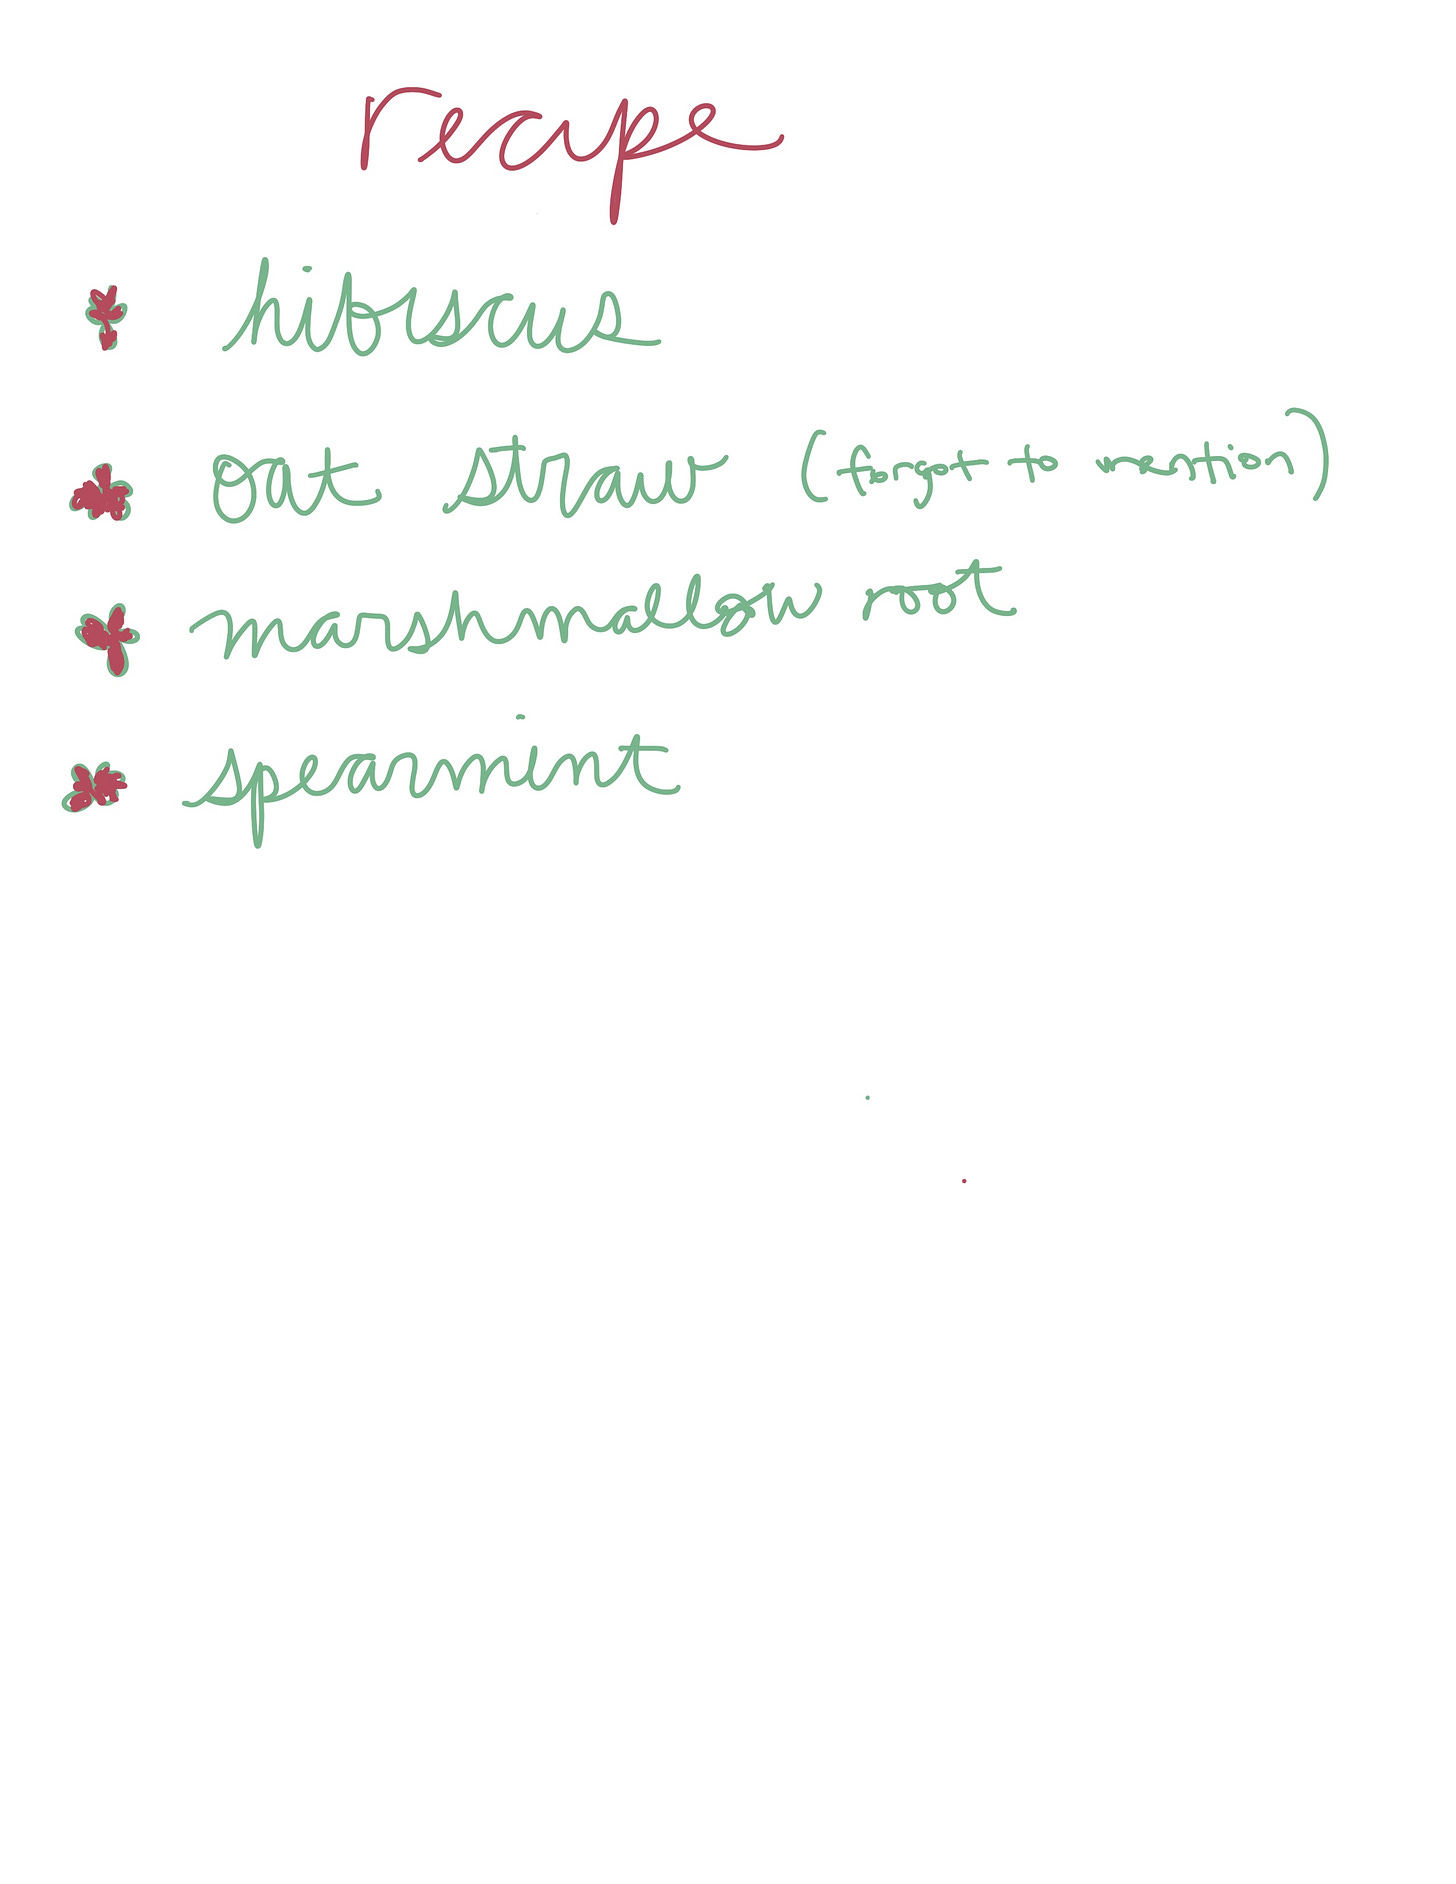 recipe
hibiscus
oat straw (forgot to mention)
marshmallow root
spearmint